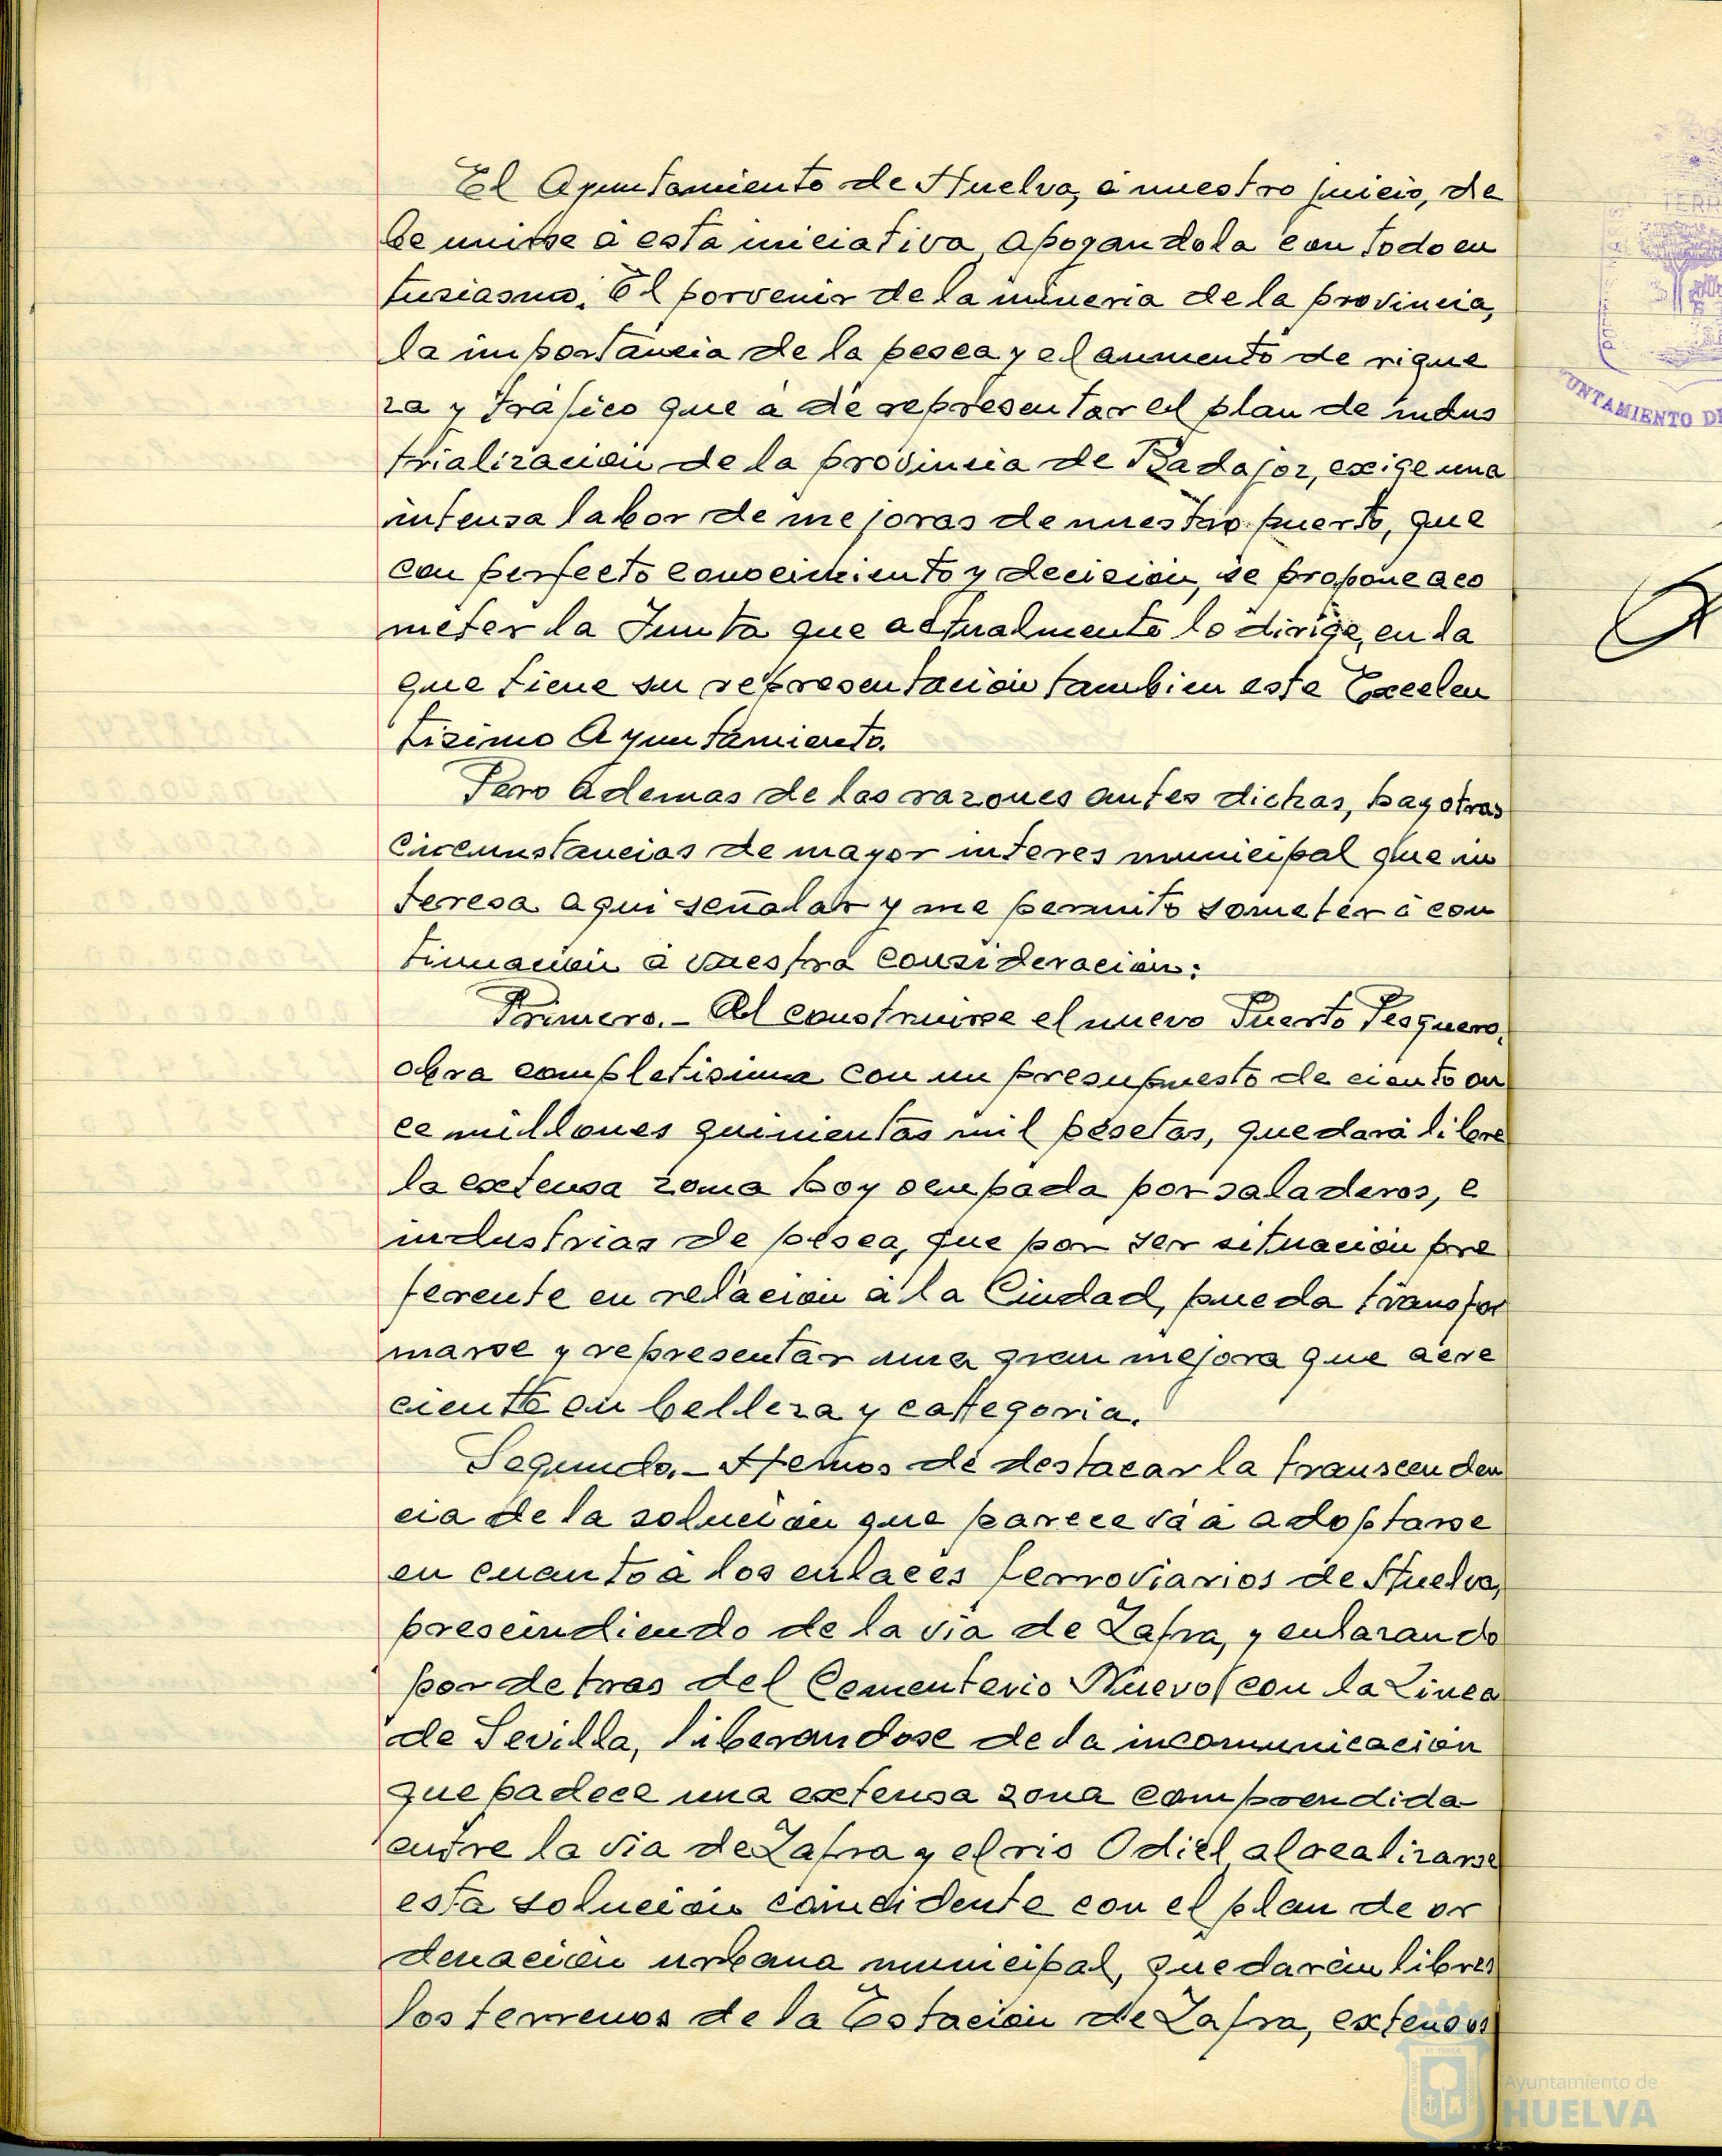 El Ayuntamiento de Huelva, á nuestro juicio, de
be unirse á esta iniciativa apoyandola con todo en
tusiasmo. El porvenir de la mineria de la provincia,
la importancia de la pesca y el aumento de rique
za y tráfico que á de representar el plan de indus
trialización de la provincia de Badajoz, exige una
intensa labor de mejoras de nuestro puerto, que
con perfecto conocimiento y decisión, se propone aco
meter la Junta que actualmente lo dirige, en la
que tiene su representación tambien este Excelen
tisimo Ayuntamiento.
Pero ademas de las razones antes dichas, hay otras
circunstancias de mayor interes municipal que in
teresa aqui señalar y me permito someter á con
tinuación á vuestra consideración:
Primero.- Al construirse el nuevo Puerto Pesquero,
obra completisima con un presupuesto de ciento on
ce millones quinientas mil pesetas, quedará libre
la extensa zona hoy ocupada por saladeros, e
industrias de pesca, que por ser situación pre
ferente en relación á la Ciudad, pueda transfor
marse y representar una gran mejora que acre
ciente en belleza y categoria.
Segundo.- Hemos de destacar la transcenden
cia de la solución que parece vá á adoptarse
en cuanto á los enlaces ferroviarios de Huelva,
prescindiendo de la via de Zafra, y enlazando
por detras del Cementerio Nuevo con la Linea
de Sevilla, liberandose de la incomunicación
que padece una extensa zona comprendida
entre la via de Zafra y el rio Odiel al realizarse
esta solución coincidente con el plan de or
denación urbana municipal, quedarán libres
los terrenos de la Estación de Zafra, extensos
UNTAMIENTO DE
Ayuntamiento de
HUELVA